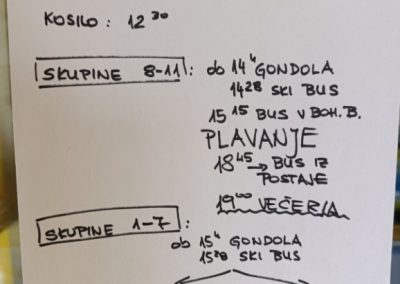 KOSILO : 12 30
SKUPINE 8-11 : ob 14 4 GONDOLA
14 28 SKI BUS
15 15 BUS V BOH. B.
PLAVANJE
18 45 → BUS IZ
POSTAJE
19 00 VEČERJA
SKUPINE 1-7 :
ob 15 4 GONDOLA
15 28 SKI BUS